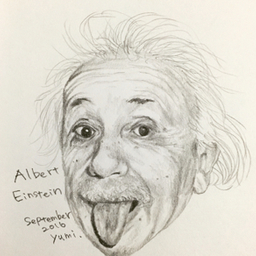 Albert
Einstein
September
2016
yumi.